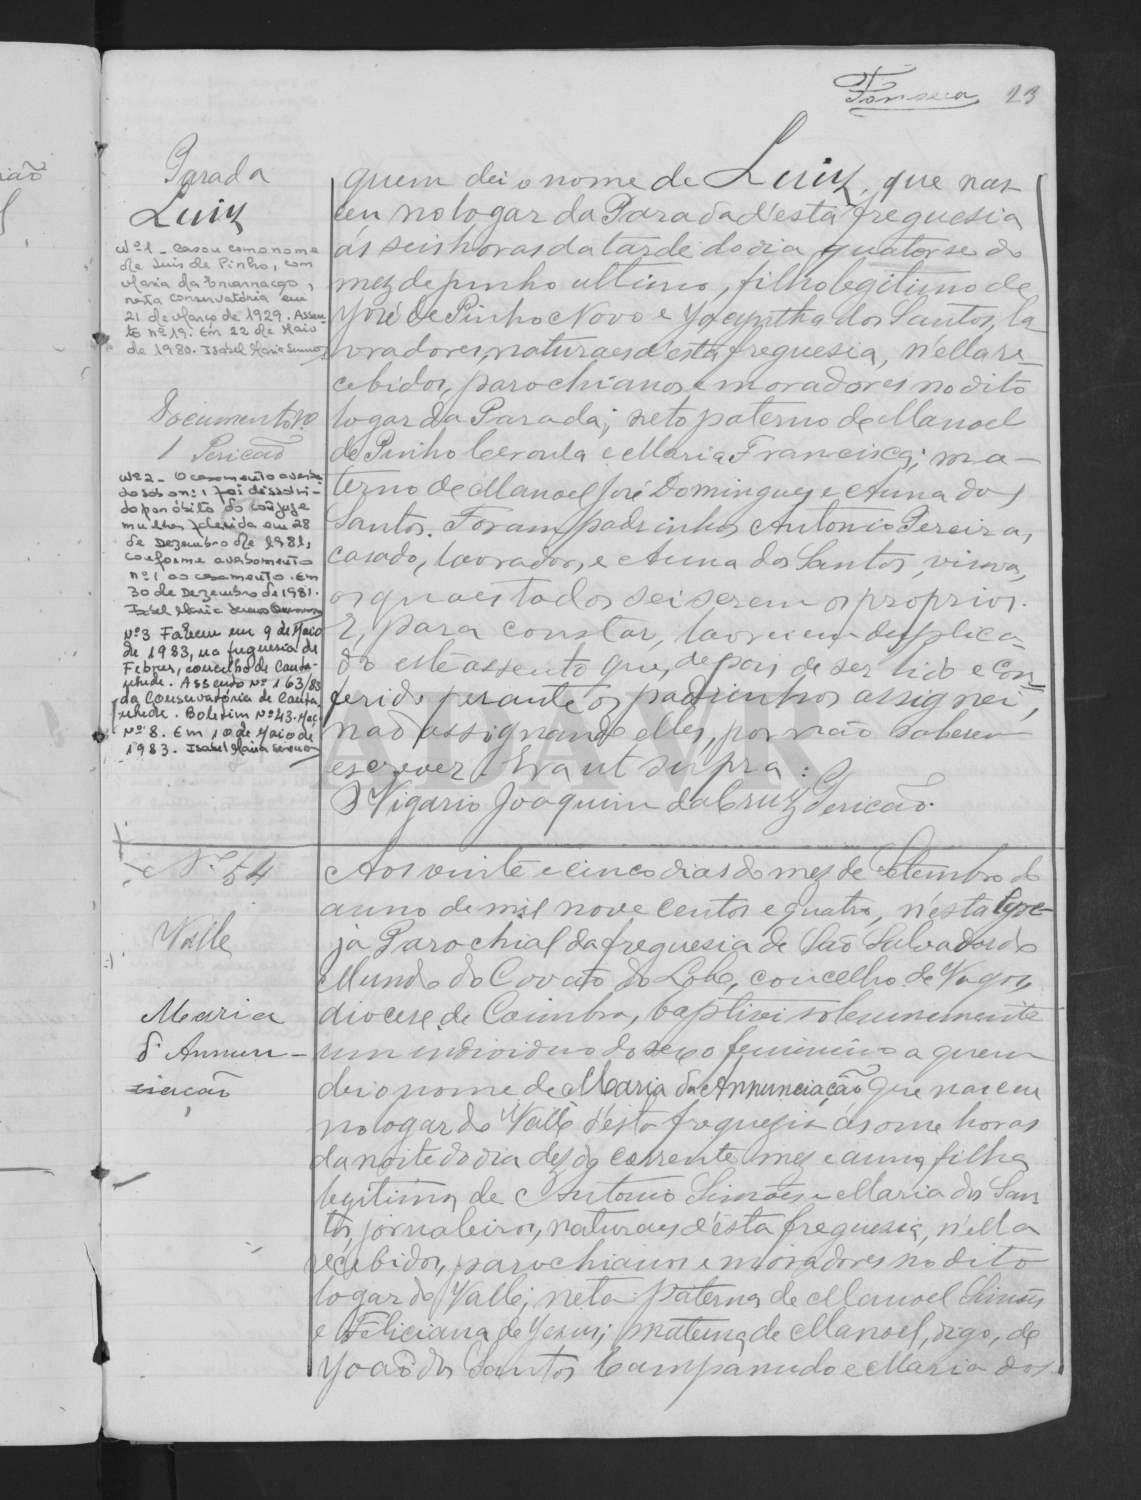 Fonseca 23
Parada
Luiz
Nº 1 - Casou com o nome
de Luis de Pinho, com
Maria da Encarnação,
nesta conservatória em
21 de Março de 1929. Assen-
to nº 19. Em 22 de Maio
de 1980. Isabel Maria
Documento nº
1 Pericão
Nº 2 - O casamento averba-
do sob o nº 1 foi dissolvi-
do por óbito do cônjuge
mulher falecida em 28
de Dezembro de 1981,
conforme averbamento
nº 1 ao casamento. Em
30 de Dezembro de 1981.
Isabel Maria
Nº 3 Faleceu em 9 de Maio
de 1983, na freguesia de
Febres, concelho de Canta-
nhede. Assento Nº 163/83
da Conservatória de Canta-
nhede. Boletim Nº 43. Maç
Nº 8. Em 10 de Maio de
1983. Isabel Maria
quem dei o nome de Luiz, que nas-
ceu no logar da Parada d'esta freguesia
ás seis horas da tarde do dia quatorse do
mez de junho ultimo, filho legitimo de
José de Pinho Novo e Jacyntha dos Santos, la-
vradores, naturaes d'esta freguesia, n'ella re-
cebidos, parochianos e moradores no dito
logar da Parada; neto paterno de Manoel
de Pinho Ceroula e Maria Francisca; ma-
terno de Manoel José Domingues e Anna dos
Santos. Foram padrinhos Antonio Pereira,
casado, lavrador, e Anna dos Santos, viuva,
os quaes todos sei serem os proprios.
E, para constar, lavrei em duplica-
do este assento que, depois de ser lido e con-
ferido perante os padrinhos assignei,
não assignando elles, por não saberem
escrever. Era ut supra:
O Vigario Joaquim da Cruz Pericão.
Nº 54
Valle
Maria
d'Annun-
ciacão
Aos vinte e cinco dias do mez de Setembro do
anno de mil nove centos e quatro, n'esta Egre-
ja Parochial da freguesia de São Salvador do
Mundo do Covão do Lobo, concelho de Vagos,
diocese de Coimbra, baptisei solemnemente
um individuo do sexo feminino a quem
dei o nome de Maria da Annunciação que nasceu
no logar do Valle d'esta freguesia ás onze horas
da noite do dia dez do corrente mez e anno, filha
legitima de Antonio Simões e Maria dos San-
tos, jornaleiros, naturaes d'esta freguesia, n'ella
recebidos, parochianos e moradores no dito
logar do Valle; neta paterna de Manoel Simões
e Feliciana de Jesus; materna de Manoel, digo, de
João dos Santos Campanudo e Maria dos
ADAVR